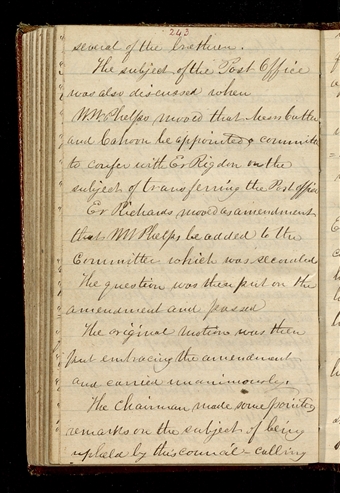 243
several of the brethren.
The subject of the Post Office
was also discussed when
W.W. Phelps moved that Messrs Cutler
and Cahoon be appointed a committe
to confer with Er Rigdon on the
subject of transferring the Post office
Er Richards moved as amendment
that WW Phelps be added to the
Committee which was seconded
The question was then put on the
amendment and passed
The original motion was then
put embracing the amendment
and carried unanimously.
The Chairman made some pointed
remarks on the subject of being
upheld by this council - calling